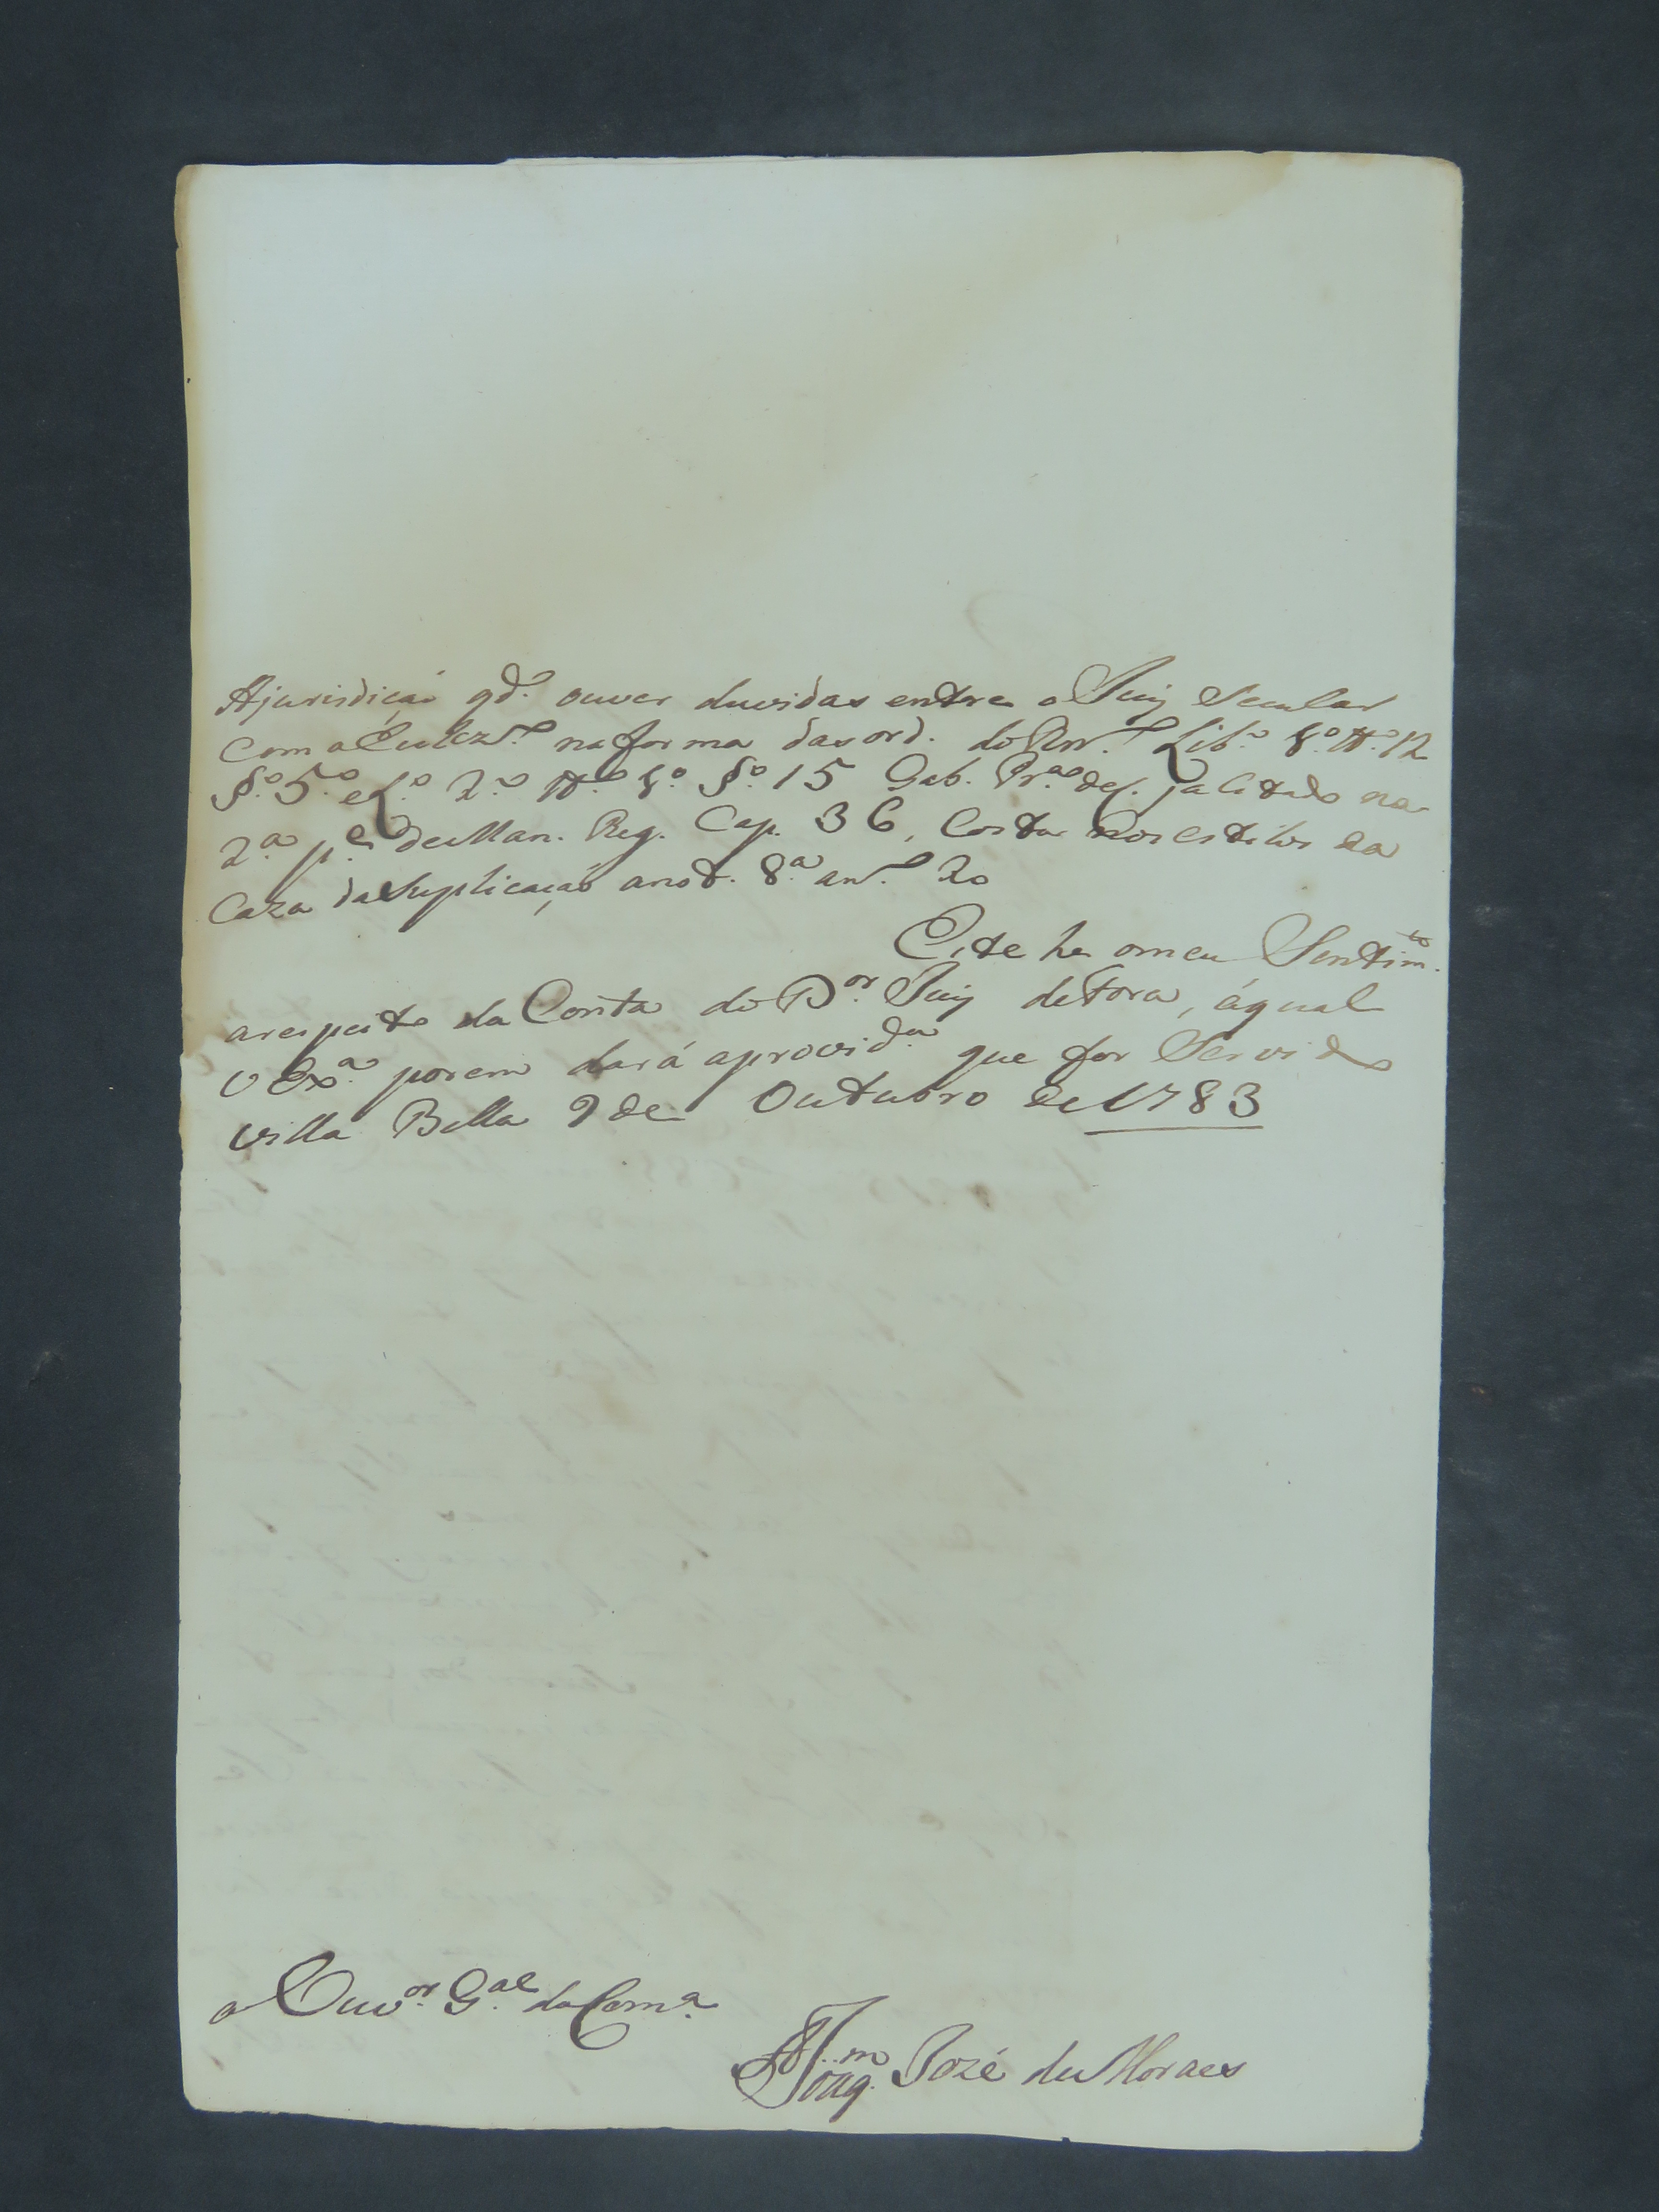 Ajurisdiçaõ qd.º ouver duvidas entre o Juiz Secular
Com o Eculez.º na forma das ord. do Rn.º Lib.º 1.º tt.º 12
§.º 5.º e L.º 2.º tt.º 1.º §.º 15 Gab. Pr.ª de já Citado na
2.ª p.e de Man. Reg. Cap. 36, Costa nos estilos da
Caza da Suplicaçaõ anot. 8.ª an.º 20
Este he o meu Sentim.to
arespeito da Conta do D.or Juiz de Fora, áqual
V Ex.ª porem dará aprovid.ª que for Servido
Villa Bella 9 de Outubro de 1783
o Ouv.or G.al da Com.ª
Joaq.m José de Moraes